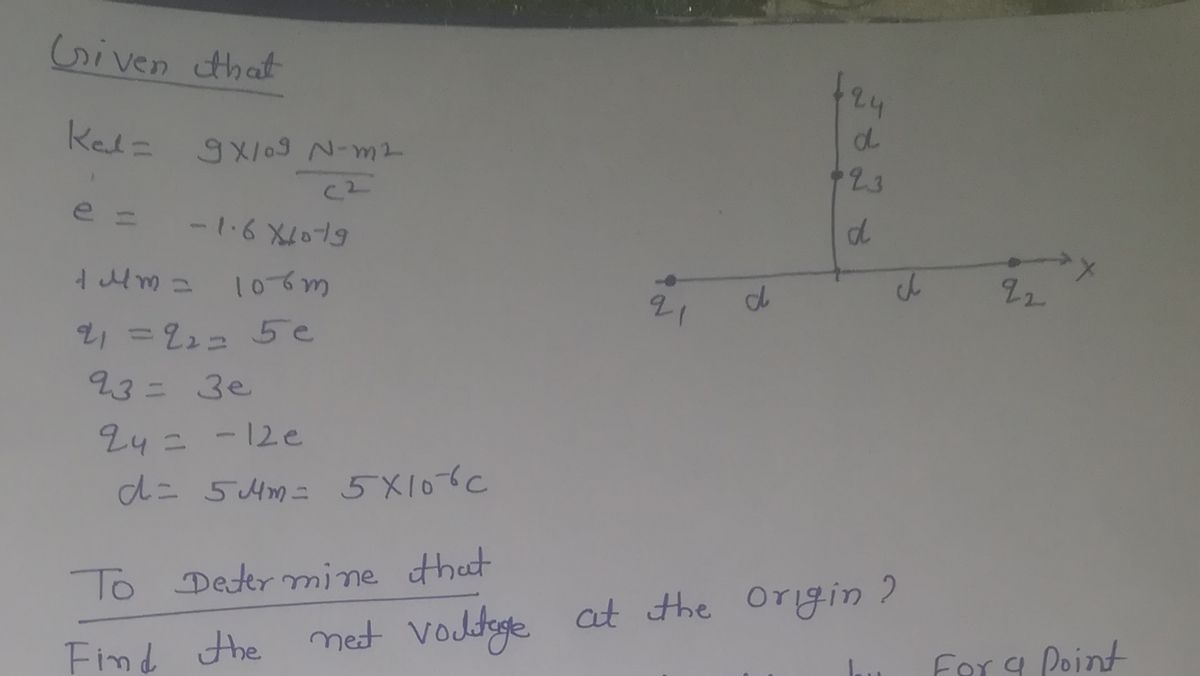 Given that
Kel = 9x109 N-m2
c2
e = -1.6 x10-19
1 Mm = 10-6m
q1 = q2 = 5e
q3 = 3e
q4 = -12e
d = 5 Mm = 5 X10-6C
q4
d
q3
d
X
q1 d d q2
To Determine that
Find the net voltage at the origin?
For a Point